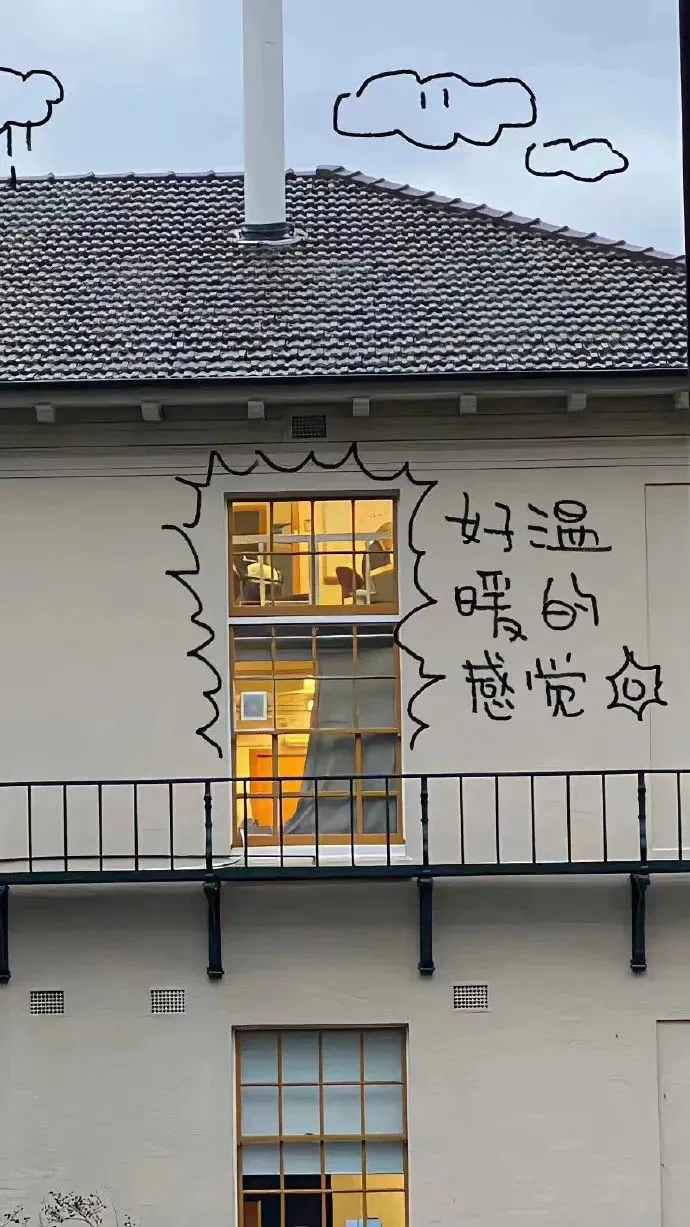 好温
暖的
感觉